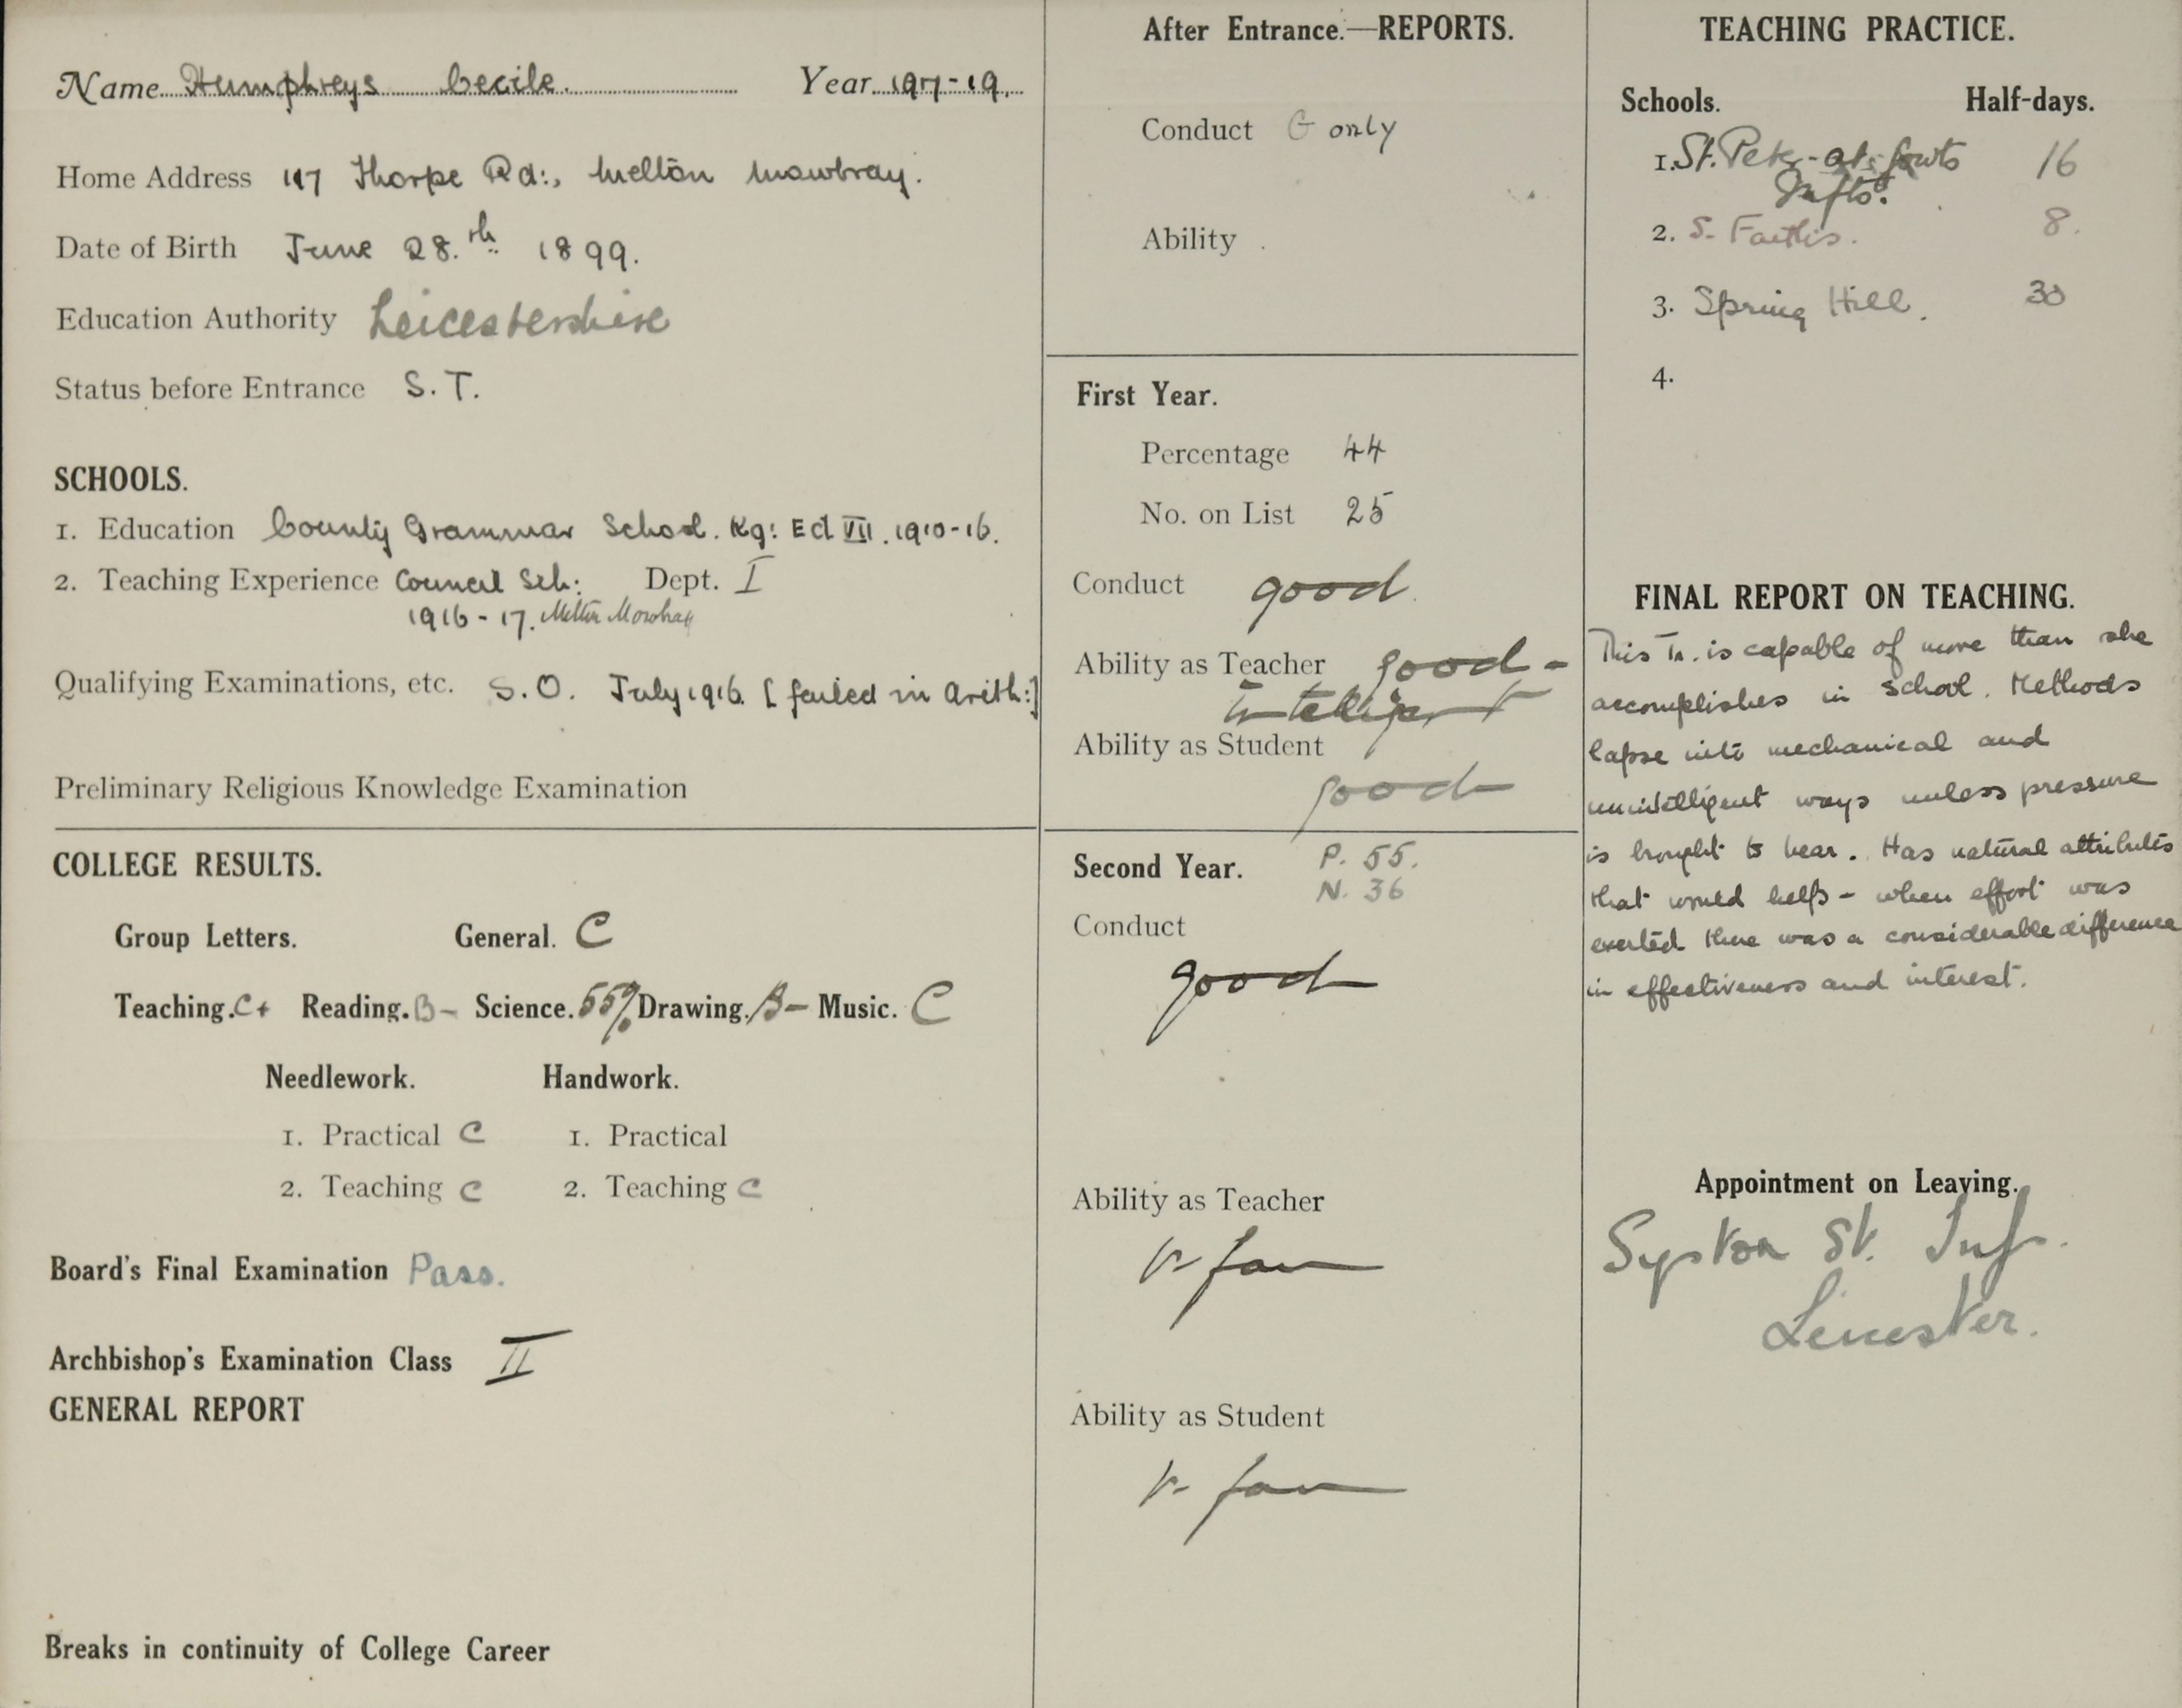 Name Humphreys Cecile. Year 1917-19.
Home Address 117 Thorpe Rd:, Melton Mowbray.
Date of Birth June 28.th 1899.
Education Authority Leicestershire
Status before Entrance S.T.
SCHOOLS.
1. Education County Grammar School. Kg: Ed VII. 1910-16.
2. Teaching Experience Council Sch: Dept. I
1916-17. Melton Mowbray
Qualifying Examinations, etc. S.O. July 1916. [failed in Arith:]
Preliminary Religious Knowledge Examination
COLLEGE RESULTS.
Group Letters. General. C
Teaching. C+ Reading. B- Science. 55% Drawing. B- Music. C
Needlework. Handwork.
1. Practical C 1. Practical
2. Teaching C 2. Teaching C
Board's Final Examination Pass.
Archbishop's Examination Class II
GENERAL REPORT
Breaks in continuity of College Career
After Entrance.—REPORTS.
Conduct G only
Ability .
First Year.
Percentage 44
No. on List 25
Conduct good.
Ability as Teacher good -
Intelligent
Ability as Student
good
Second Year. P. 55.
N. 36
Conduct
good
Ability as Teacher
v. fair
Ability as Student
v. fair
TEACHING PRACTICE.
Schools. Half-days.
1. St. Peter-at-Gowts 16
Infts.
2. S. Faiths. 8.
3. Spring Hill. 30
4.
FINAL REPORT ON TEACHING.
This Tr. is capable of more than she
accomplishes in school. Methods
lapse into mechanical and
unintelligent ways unless pressure
is brought to bear. Has natural attributes
that would help - when effort was
exerted there was a considerable difference
in effectiveness and interest.
Appointment on Leaving.
Syston St. Inf.
Leicester.